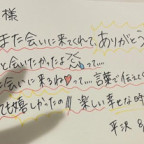 様
また会いに来てくれてありがとう
と会いたかったよ って....
た会いに来るね って.... 言葉で伝えら
ても嬉しかった!! 楽しい幸せな時
平沢